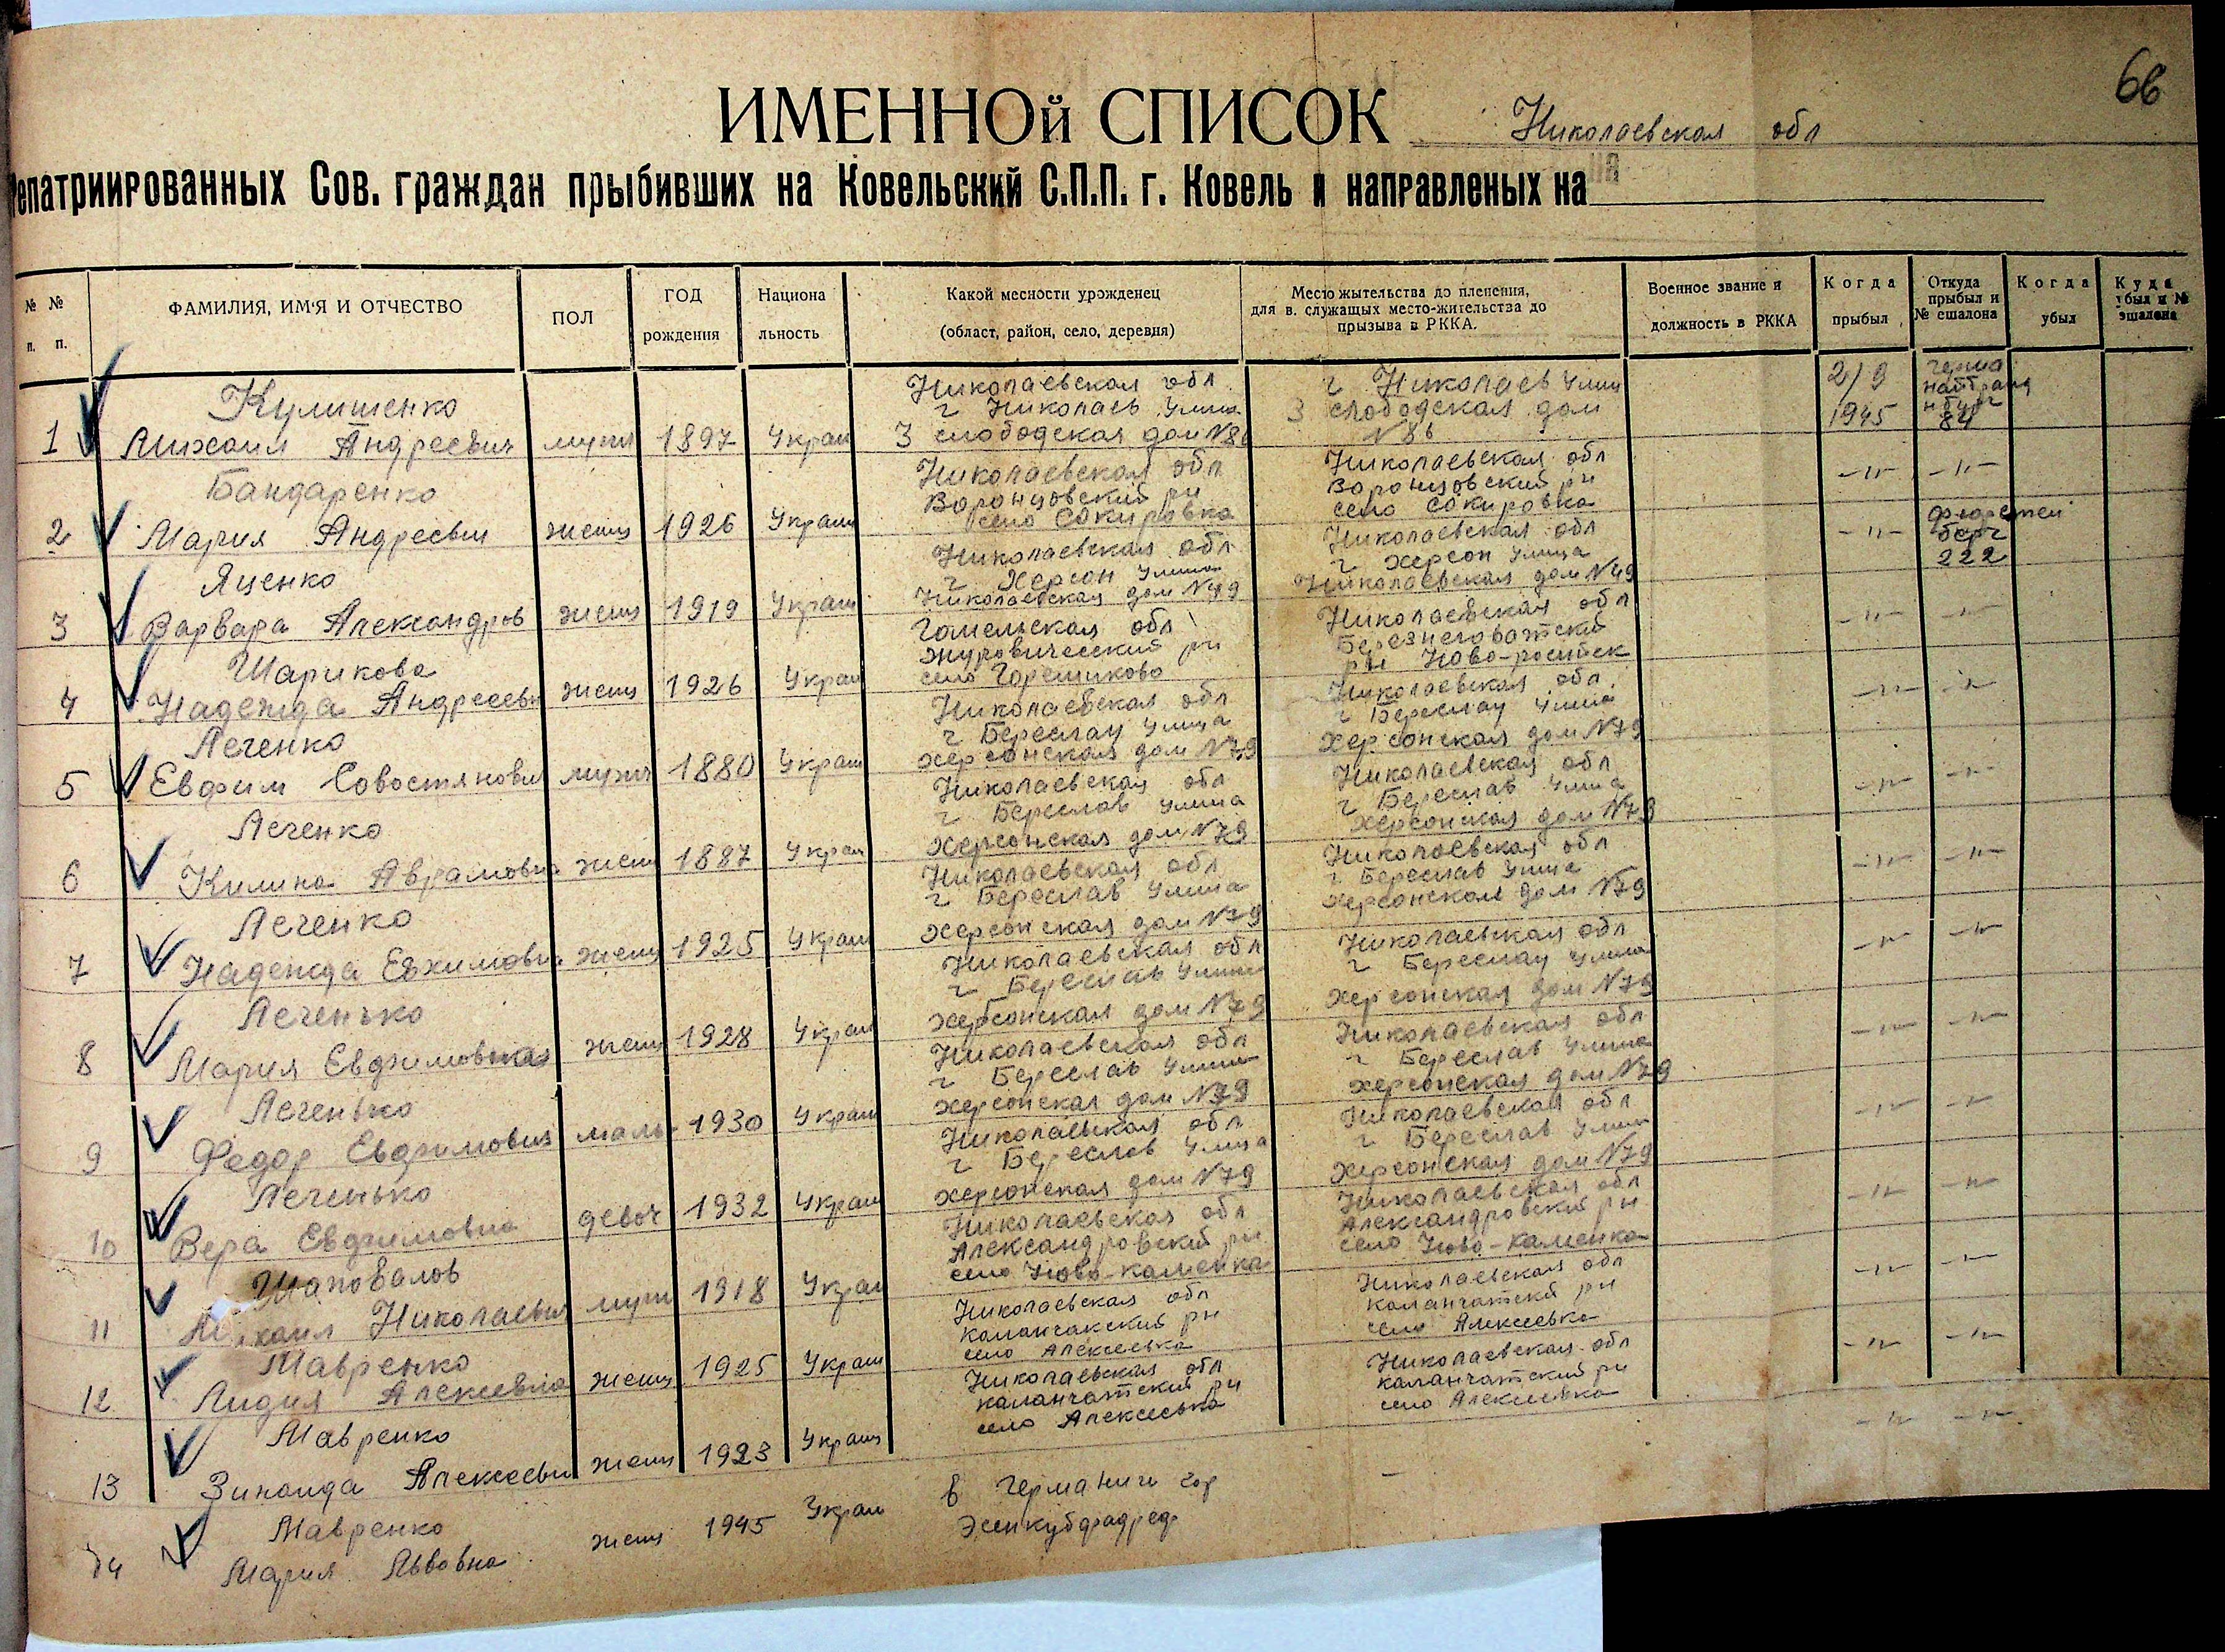 6в
ИМЕННОй СПИСОК Николаевская обл
Репатриированных Сов. граждан прыбивших на Ковельский С.П.П. г. Ковель и направленых на
№ № п. п. ФАМИЛИЯ, ИМ'Я И ОТЧЕСТВО ПОЛ ГОД рождения Национа льность Какой месности урожденец (област, район, село, деревня) Место жытельства до пленения, для в. служащих место-жительства до прызыва в РККА. Военное звание и должность в РККА Когда прыбыл Откуда прыбыл и № ешалона Когда убыл Куда убыл и № эшалона
Кулишенко
1 Михаил Андреевич мужч 1897 Украи
Николаевская обл
г Николаев улица
3 слободская дом N 86
г Николаев улиц
3 слободская дом
N 86
2/9
1945
84
Бандаренко
2 Мария Андреевн женщ 1926 Украин
Николаевская обл
Воронцовский рн
село Сокировка
Николаевская обл
Воронцовский рн
село Сокировка
-"- -"-
Яценко
3 Варвара Александров женщ 1919 Украин
Николаевская обл
г Херсон улица
Николаевская дом N 49
Николаевская обл
г Херсон улица
Николаевская дом N 49
-"-
берг
222
Шарикова
4 Надежда Андреевн женщ 1926 Украи
Гомельская обл
рн
село
Николаевская обл
Березнеговатский
рн
-"- -"-
Леченко
5 Евфим Совостянови мужч 1880 Украи
Николаевская обл
г Береслау улица
Херсонская дом N 79
Николаевская обл
г Береслау улица
Херсонская дом N 79
-"- -"-
Леченко
6 Килина Аврамовна женщ 1887 Украи
Николаевская обл
г Береслав улица
Херсонская дом N 79
Николаевская обл
г Береслав улица
Херсонская дом N 79
-"- -"-
Леченко
7 Надежда Евхимовн женщ 1925 Украи
Николаевская обл
г Береслав улица
Херсонская дом N 79
Николаевская обл
г Береслав улица
Херсонская дом N 79
-"- -"-
Леченько
8 Мария Евфимовная женщ 1928 Украи
Николаевская обл
г Береслав улица
Херсонская дом N 79
Николаевская обл
г Береслау улица
Херсонская дом N 79
-"- -"-
Леченько
9 Федор Евфимович маль 1930 Украи
Николаевская обл
г Береслав улица
Херсонская дом N 79
Николаевская обл
г Береслав улица
Херсонская дом N 79
-"- -"-
Леченько
10 Вера Евфимовна девоч 1932 Украи
Николаевская обл
г Береслав улица
Херсонская дом N 79
Николаевская обл
г Береслав улиц
Херсонская дом N 79
-"- -"-
Шаповалов
11 Михаил Николаевич мужч 1918 Украи
Николаевская обл
Александровский рн
село Ново-Каменка
Николаевская обл
Александровский рн
село Ново-Каменка
-"- -"-
Мавренко
12 Лидия Алексевна женщ 1925 Украи
Николаевская обл
Каланчакский рн
село Алексеевка
Николаевская обл
Каланчатский рн
село Алексеевка
-"- -"-
Мавренко
13 Зинаида Алексеевн женщ 1923 Украин
Николаевская обл
Каланчатский рн
село Алексеевка
Николаевская обл
Каланчатский рн
село Алексеевка
-"- -"-
Мавренко
14 Мария Львовна женщ 1945 Украи
в Германии гор
-
-"- -"-